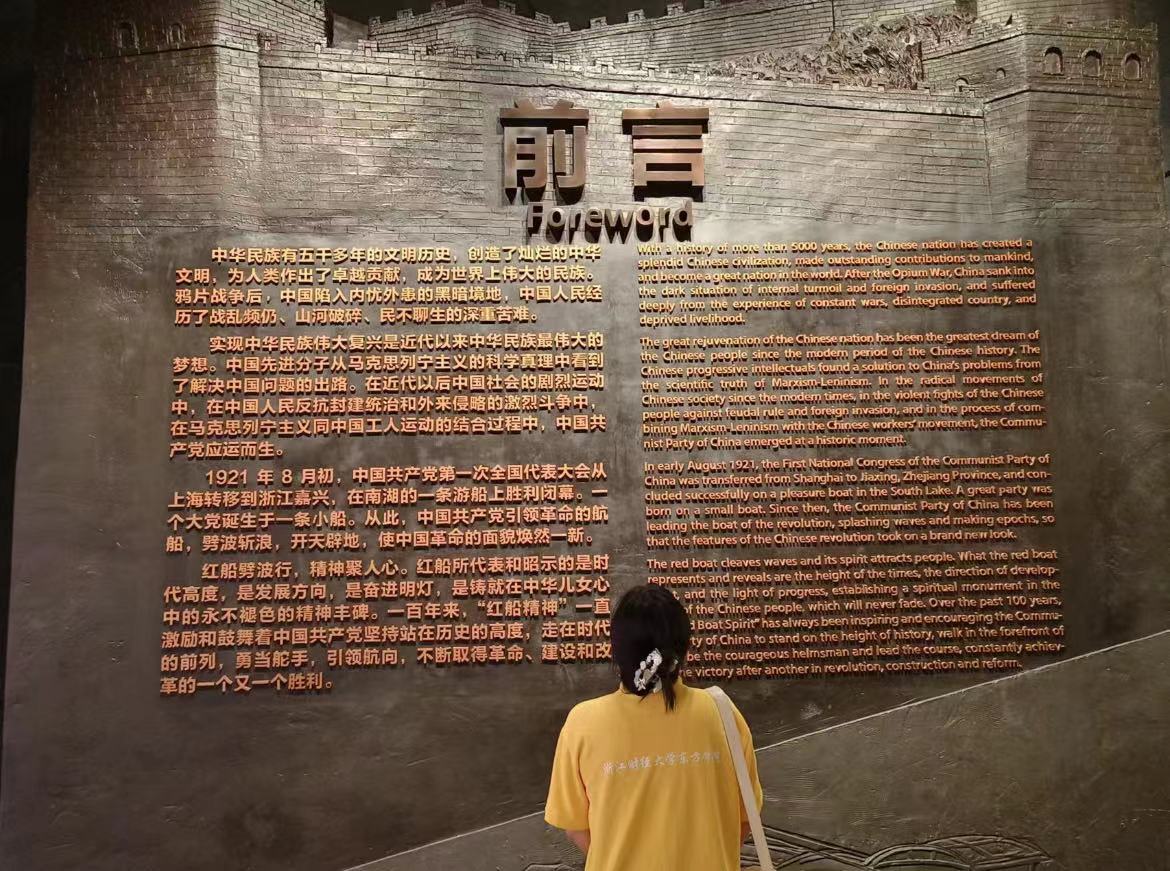 前言
Foreword
中华民族有五千多年的文明历史，创造了灿烂的中华
文明，为人类作出了卓越贡献，成为世界上伟大的民族。
鸦片战争后，中国陷入内忧外患的黑暗境地，中国人民经
历了战乱频仍、山河破碎、民不聊生的深重苦难。
实现中华民族伟大复兴是近代以来中华民族最伟大的
梦想。中国先进分子从马克思列宁主义的科学真理中看到
了解决中国问题的出路。在近代以后中国社会的剧烈运动
中，在中国人民反抗封建统治和外来侵略的激烈斗争中，
在马克思列宁主义同中国工人运动的结合过程中，中国共
产党应运而生。
1921 年 8 月初，中国共产党第一次全国代表大会从
上海转移到浙江嘉兴，在南湖的一条游船上胜利闭幕。一
个大党诞生于一条小船。从此，中国共产党引领革命的航
船，劈波斩浪，开天辟地，使中国革命的面貌焕然一新。
红船劈波行，精神聚人心。红船所代表和昭示的是时
代高度，是发展方向，是奋进明灯，是铸就在中华儿女心
中的永不褪色的精神丰碑。一百年来，“红船精神”一直
激励和鼓舞着中国共产党坚持站在历史的高度，走在时代
的前列，勇当舵手，引领航向，不断取得革命、建设和改
革的一个又一个胜利。
With a history of more than 5000 years, the Chinese nation has created a
splendid Chinese civilization, made outstanding contributions to mankind,
and become a great nation in the world. After the Opium War, China sank into
the dark situation of internal turmoil and foreign invasion, and suffered
deeply from the experience of constant wars, disintegrated country, and
deprived livelihood.
The great rejuvenation of the Chinese nation has been the greatest dream of
the Chinese people since the modern period of the Chinese history. The
Chinese progressive intellectuals found a solution to China's problems from
the scientific truth of Marxism-Leninism. In the radical movements of
Chinese society since the modern times, in the violent fights of the Chinese
people against feudal rule and foreign invasion, and in the process of com-
bining Marxism-Leninism with the Chinese workers' movement, the Commu-
nist Party of China emerged at a historic moment.
In early August 1921, the First National Congress of the Communist Party of
China was transferred from Shanghai to Jiaxing, Zhejiang Province, and con-
cluded successfully on a pleasure boat in the South Lake. A great party was
born on a small boat. Since then, the Communist Party of China has been
leading the boat of the revolution, splashing waves and making epochs, so
that the features of the Chinese revolution took on a brand new look.
The red boat cleaves waves and its spirit attracts people. What the red boat
represents and reveals are the height of the times, the direction of develop-
and the light of progress, establishing a spiritual monument in the
of the Chinese people, which will never fade. Over the past 100 years,
Boat Spirit" has always been inspiring and encouraging the Commu-
of China to stand on the height of history, walk in the forefront of
be the courageous helmsman and lead the course, constantly achiev-
victory after another in revolution, construction and reform.
浙江财经大学东方学院